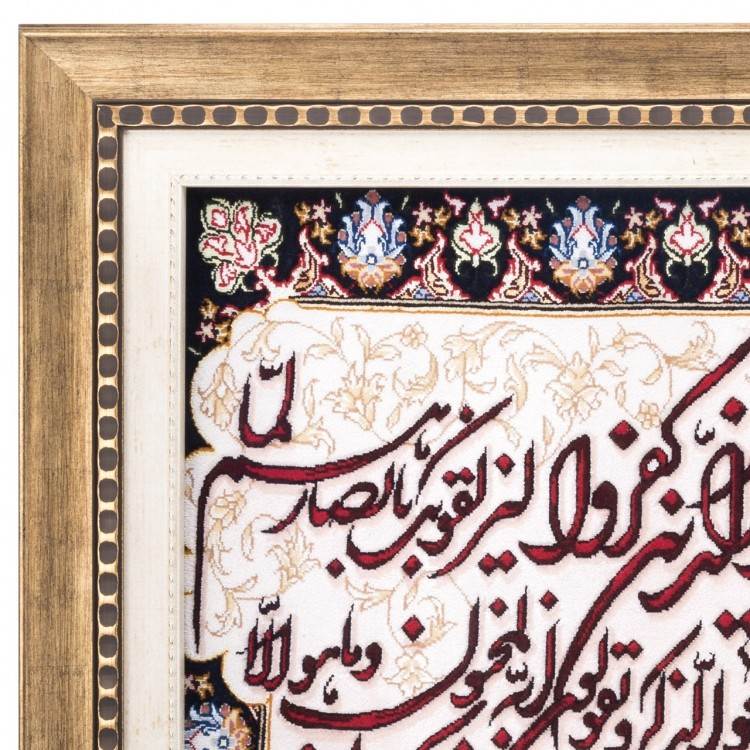 كفروا ليزلقونك بابصارهم لمّا
الذكر و يقولون انه لمجنون وما هو الّا